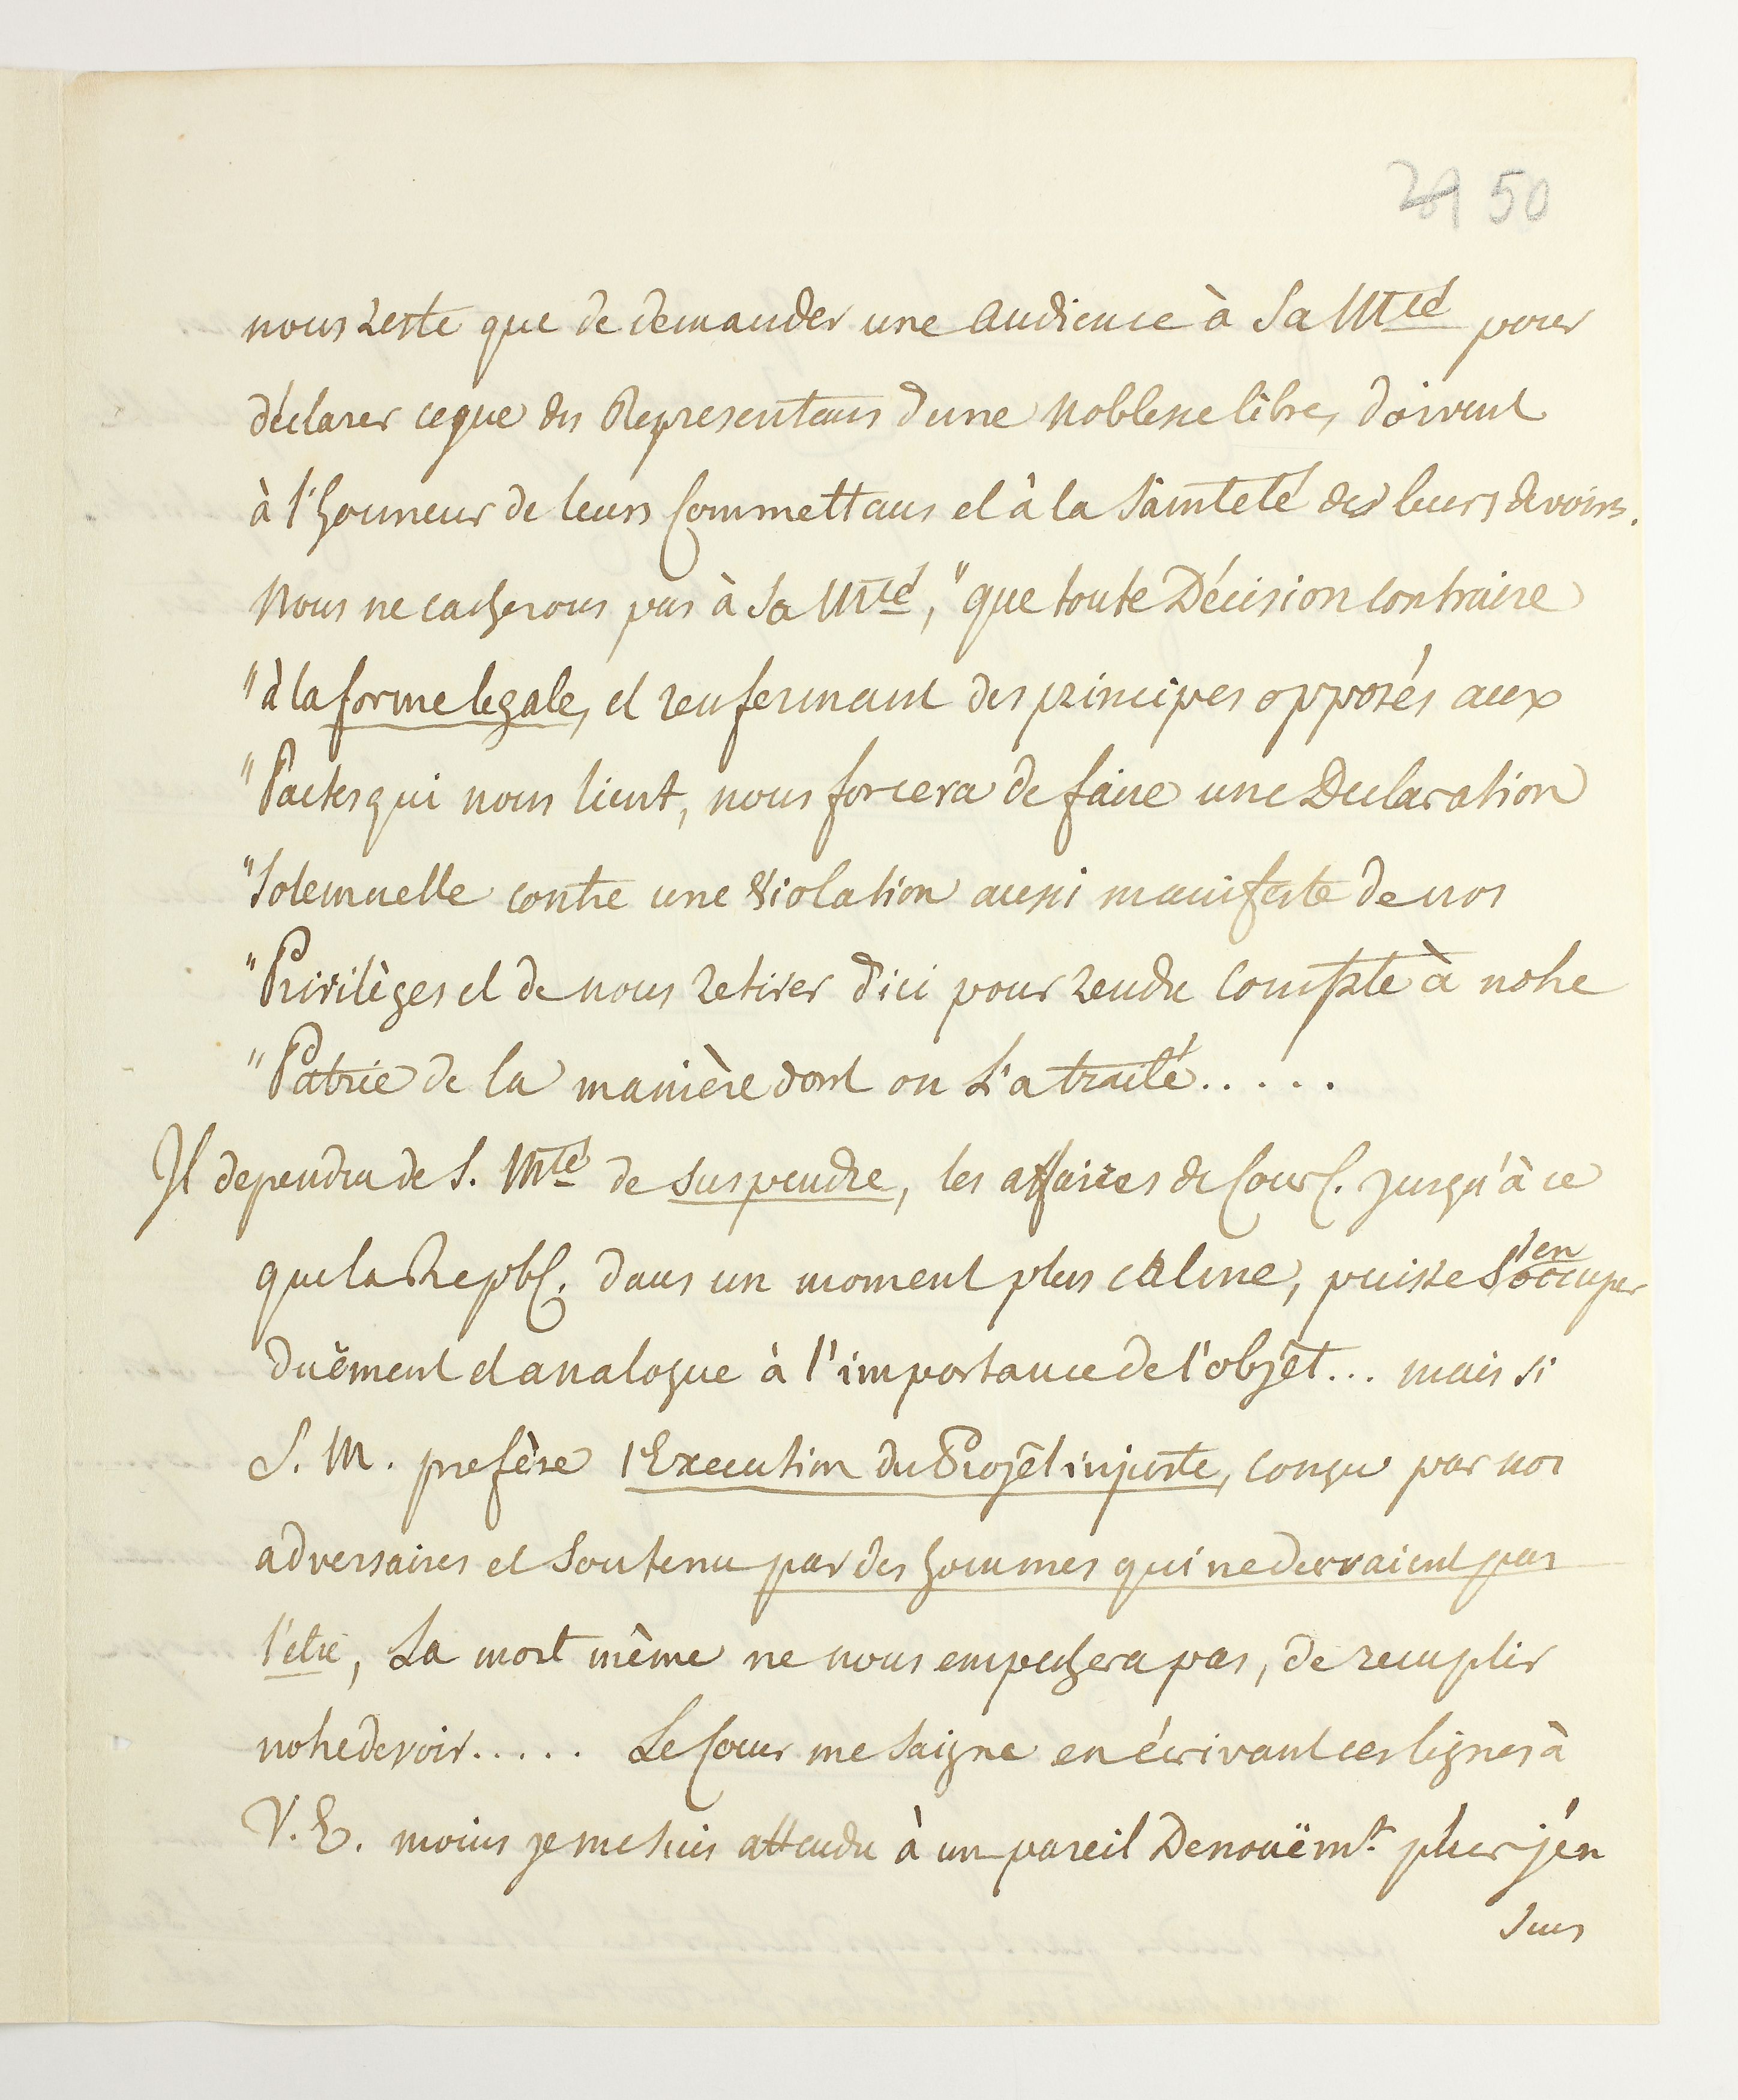 29 50
nous reste que de demander une audience à Sa Mté pour
déclarer ce que des Representans d'une Noblesse libre, doivent
à l'honneur de leurs Committans et à la Sainteté de leurs devoirs.
Nous ne cacherons pas à Sa Mté, "que toute Décision contraire
"à la forme legale, et renfermant des principes opposés aux
"Pactes qui nous lient, nous forcera de faire une Declaration
"Solemnelle contre une Violation aussi manifeste de nos
"Privilèges et de nous retirer d'ici pour rendre compte à notre
"Patrie de la manière dont on L'a traité.....
Il dependra de S. Mté de suspendre, les affaires de Courl. jusqu'à ce
que la Republ. dans un moment plus calme, puisse s'en occuper
duëment et analogue à l'importance de l'objet... mais si
S. M. prefère l'Execution du Projet injuste, conçu par nos
adversaires et Soutenu par des hommes qui ne devraient pas
l'etre, La mort même ne nous empechera pas, de remplir
notre devoir..... Le Coeur me Saigne en écrivant ces lignes à
V. E. moins je me suis attendu à un pareil Denouëmt. plus j'en
suis